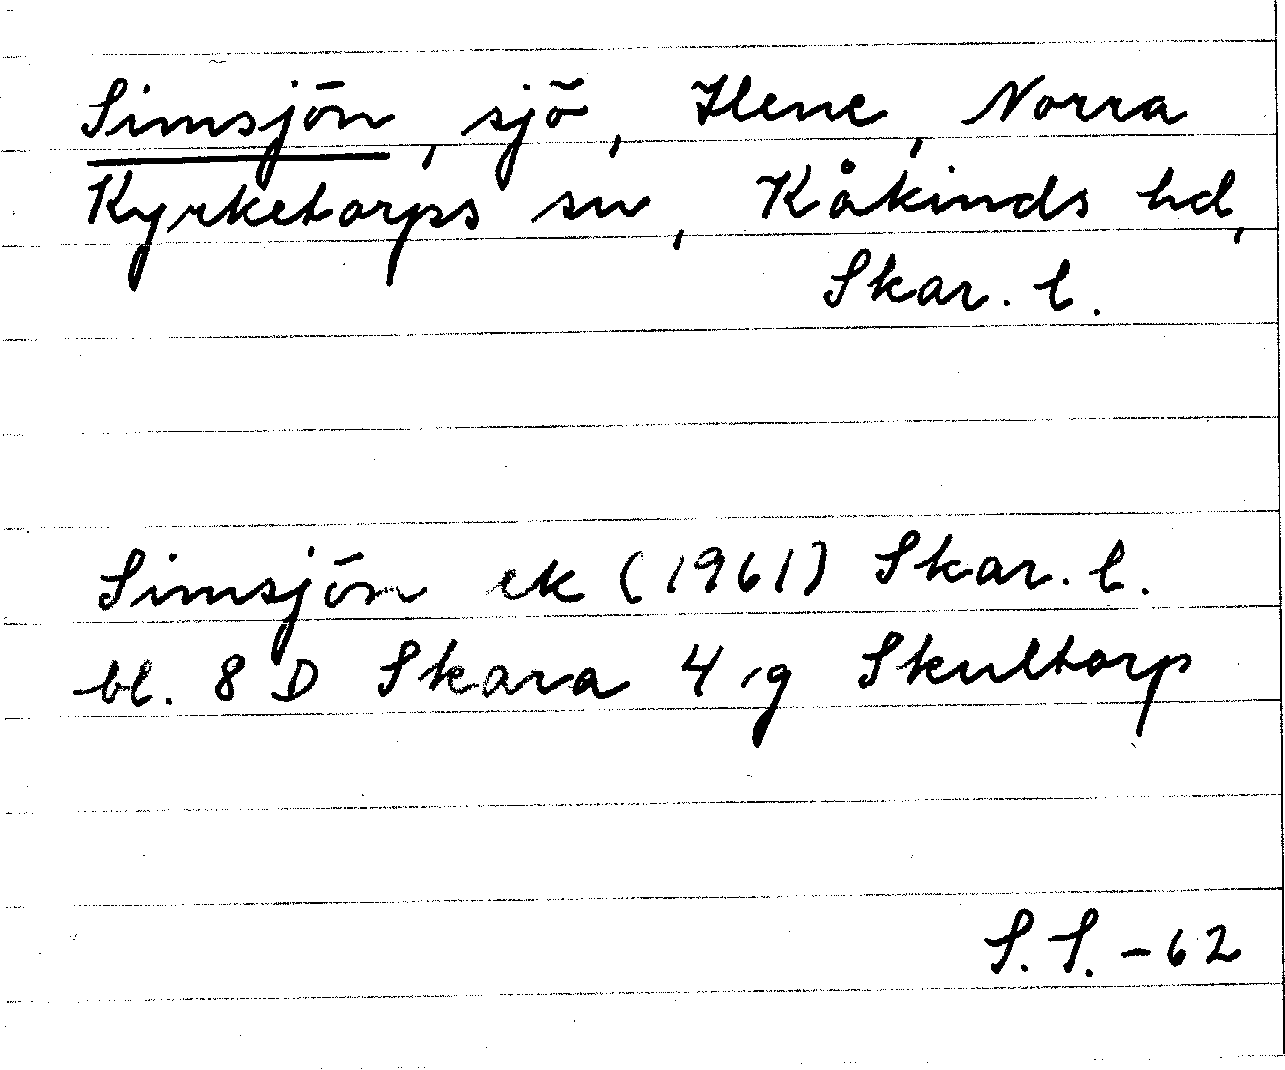 Simsjön, sjö, Hene, Norra
Kyrketorps sn, Kåkinds hd,
Skar. l.
Simsjön ek (1961) Skar. l.
bl. 8 D Skara 4 g Skultorp
S. S. -62